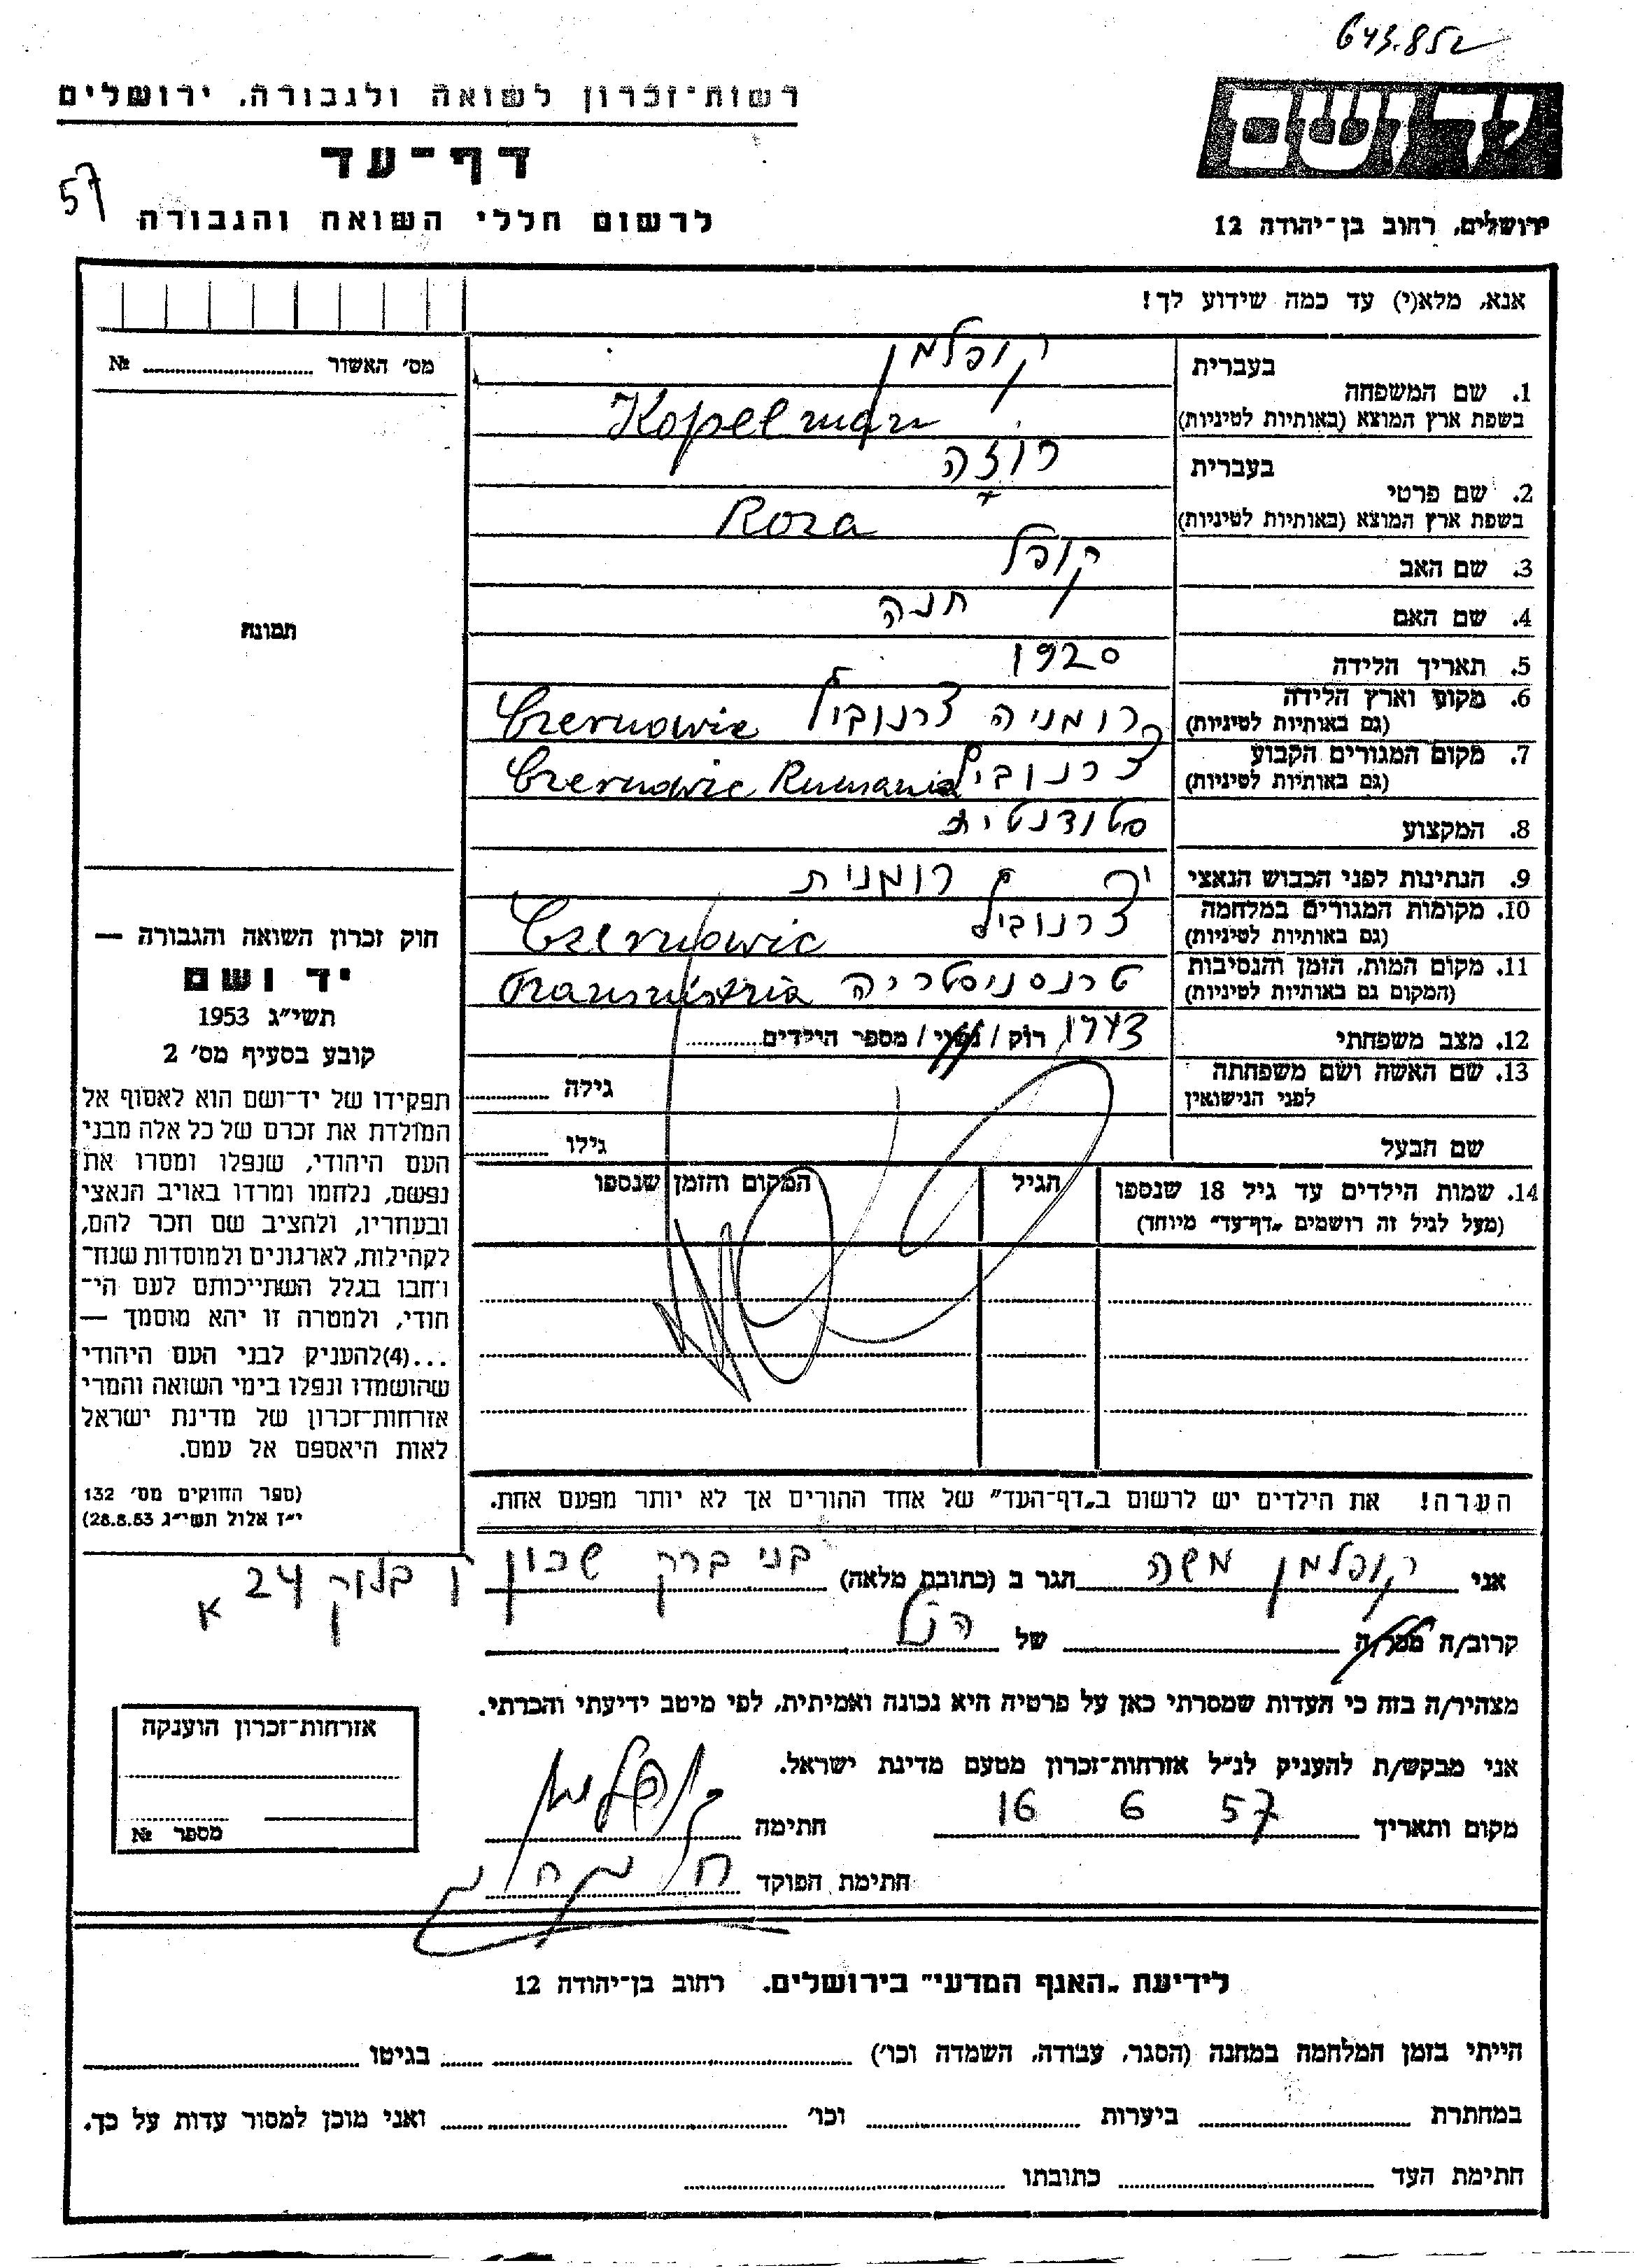 643.852
יד ושם
ירושלים, רחוב בן־יהודה 12
רשות־זכרון לשואה ולגבורה, ירושלים
דף־עד
57
לרשום חללי השואה והגבורה
אנא, מלא(י) עד כמה שידוע לך!
מס׳ האשור № 
תמונה
בעברית קופלמן
1. שם המשפחה
בשפת ארץ המוצא (באותיות לטיניות) Kopelman
בעברית רוזה
2. שם פרטי
בשפת ארץ המוצא (באותיות לטיניות) Roza
3. שם האב קופל
4. שם האם חנה
5. תאריך הלידה 1920
6. מקום וארץ הלידה רומניה צרנוביץ Czernowic
(גם באותיות לטיניות)
7. מקום המגורים הקבוע צרנוביץ Czernowic Rumania
(גם באותיות לטיניות)
8. המקצוע סטודנטית
9. הנתינות לפני הכבוש הנאצי רומנית
10. מקומות המגורים במלחמה צרנוביץ Czernowic
(גם באותיות לטיניות)
11. מקום המות, הזמן והנסיבות טרנסניסטריה Transnistria
(המקום גם באותיות לטיניות)
12. מצב משפחתי רוק / נשוי / מספר הילדים
13. שם האשה ושם משפחתה גילה
לפני הנישואין
שם הבעל גילו
14. שמות הילדים עד גיל 18 שנספו הגיל המקום והזמן שנספו
(מעל לגיל זה רושמים „דף־עד” מיוחד)
חוק זכרון השואה והגבורה —
יד ושם
תשי״ג 1953
קובע בסעיף מס׳ 2
תפקידו של יד־ושם הוא לאסוף אל
המולדת את זכרם של כל אלה מבני
העם היהודי, שנפלו ומסרו את
נפשם, נלחמו ומרדו באויב הנאצי
ובעוזריו, ולהציב שם וזכר להם,
לקהילות, לארגונים ולמוסדות שנח־
רבו בגלל השתייכותם לעם הי־
הודי, ולמטרה זו יהא מוסמך —
...(4)להעניק לבני העם היהודי
שהושמדו ונפלו בימי השואה והמרי
אזרחות־זכרון של מדינת ישראל
לאות היאספם אל עמם.
(ספר החוקים מס׳ 132
י״ז אלול תשי״ג 28.8.53)
הערה! את הילדים יש לרשום ב„דף־העד” של אחד ההורים אך לא יותר מפעם אחת.
אני קופלמן משה הגר ב (כתובת מלאה) בני ברק שכון ו בלוק 24 א
קרוב/ה מכר/ה של הנ״ל
מצהיר/ה בזה כי העדות שמסרתי כאן על פרטיה היא נכונה ואמיתית, לפי מיטב ידיעתי והכרתי.
אני מבקש/ת להעניק לנ״ל אזרחות־זכרון מטעם מדינת ישראל.
מקום ותאריך 16 6 57 חתימה קופלמן
חתימת הפוקד
אזרחות־זכרון הוענקה
מספר №
לידיעת „האגף המדעי” בירושלים. רחוב בן־יהודה 12
הייתי בזמן המלחמה במחנה (הסגר, עבודה, השמדה וכו׳) בגיטו
במחתרת ביערות וכו׳ ואני מוכן למסור עדות על כך.
חתימת העד כתובתו